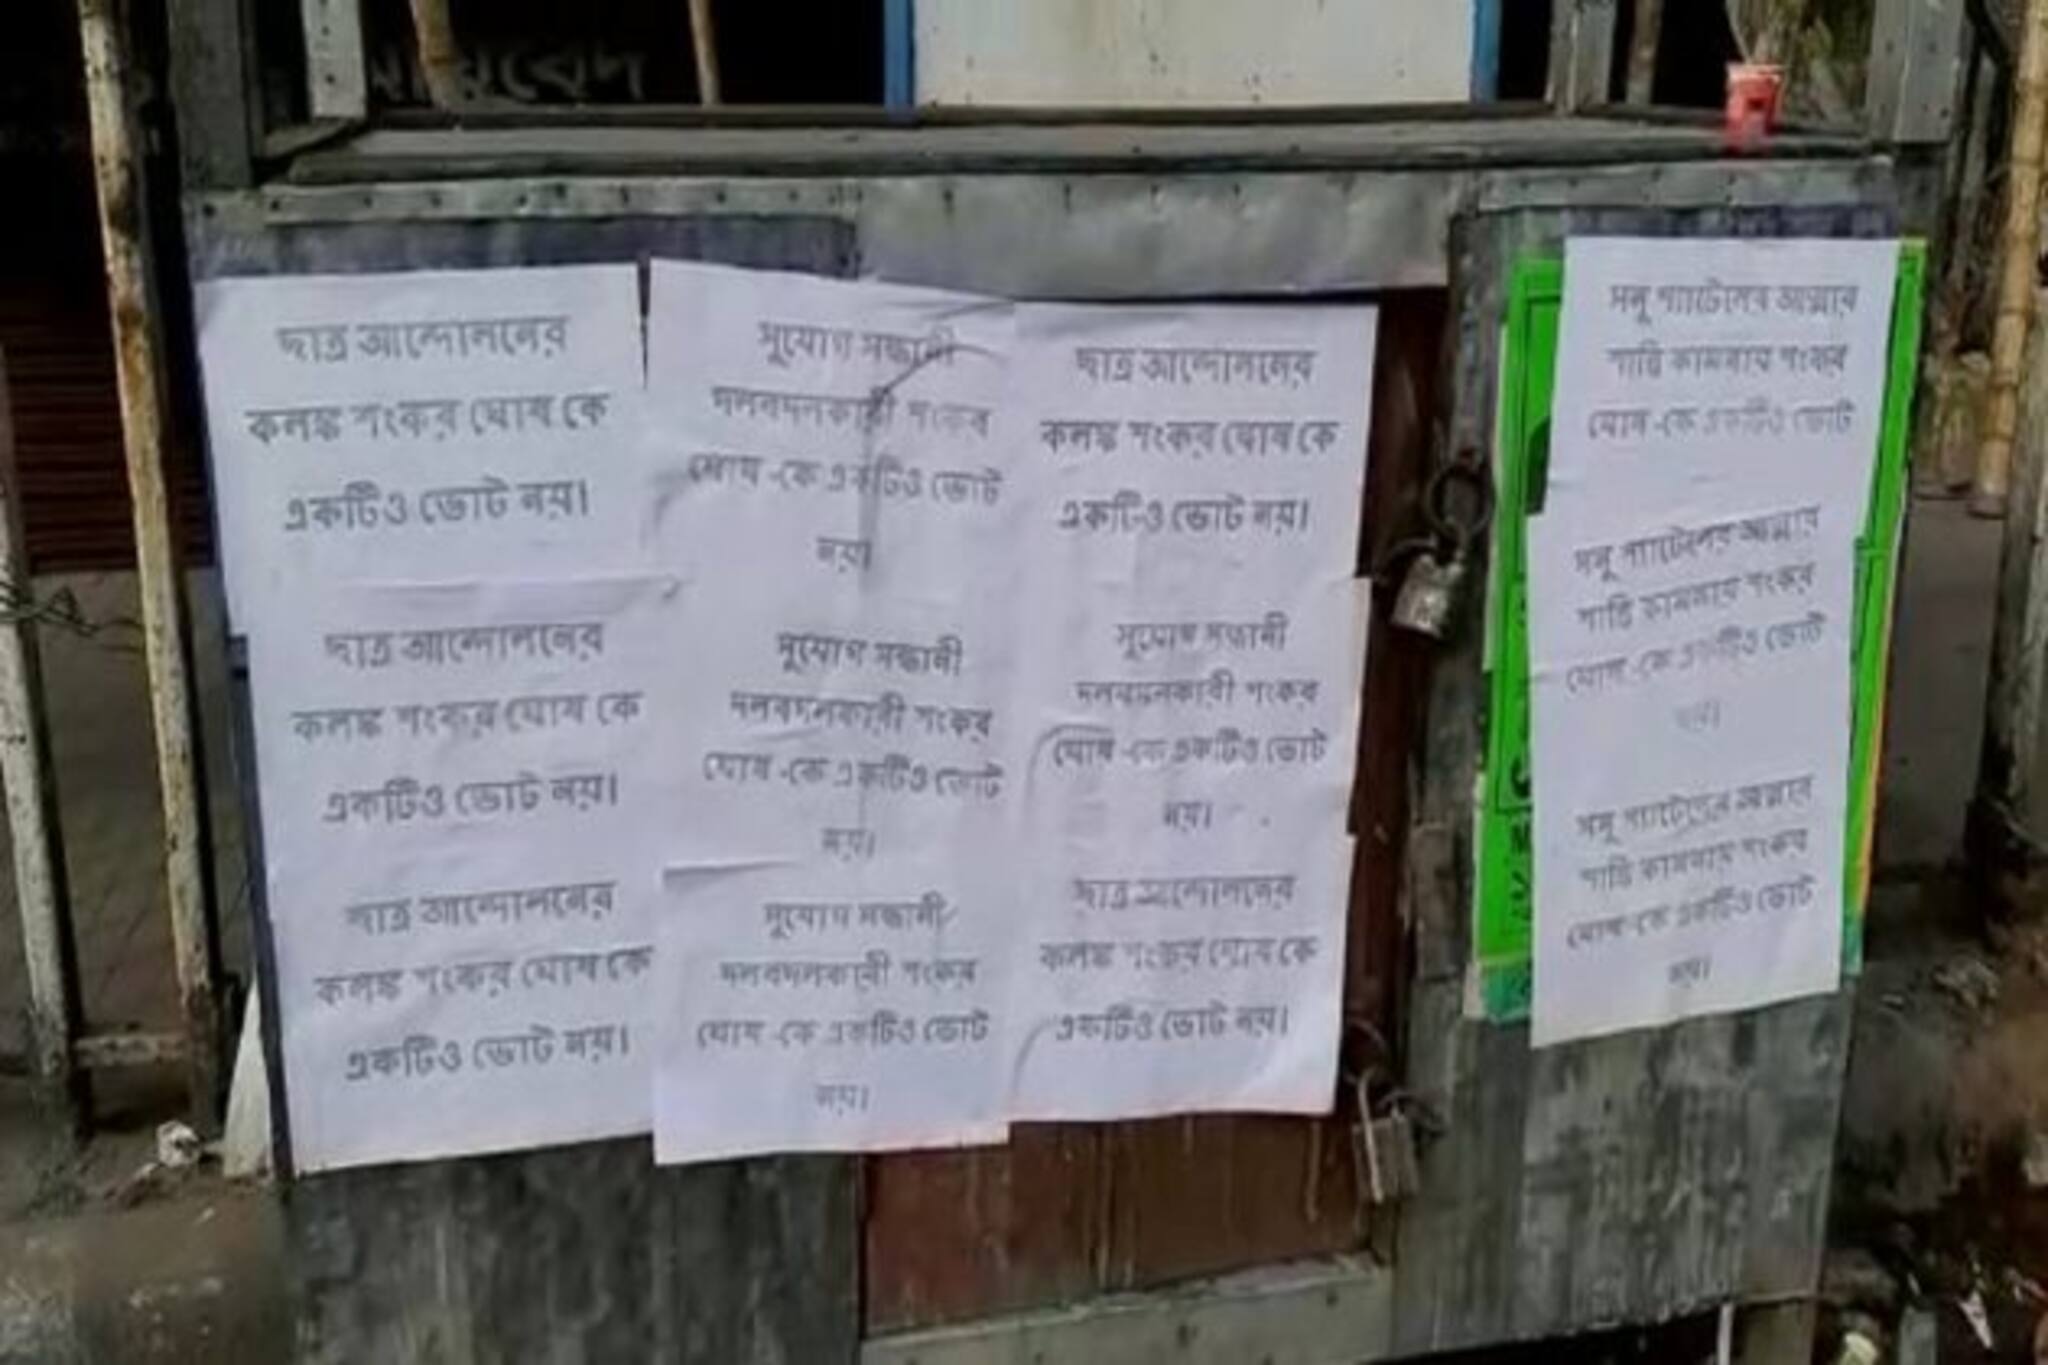 য়ুরবেদ
ছাত্র আন্দোলনের
কলঙ্ক শংকর ঘোষ কে
একটিও ভোট নয়।
ছাত্র আন্দোলনের
কলঙ্ক শংকর ঘোষ কে
একটিও ভোট নয়।
ছাত্র আন্দোলনের
কলঙ্ক শংকর ঘোষ কে
একটিও ভোট নয়।
সুযোগ সন্ধানী
দলবদলকারী শংকর
ঘোষ -কে একটিও ভোট
নয়।
সুযোগ সন্ধানী
দলবদলকারী শংকর
ঘোষ -কে একটিও ভোট
নয়।
সুযোগ সন্ধানী
দলবদলকারী শংকর
ঘোষ -কে একটিও ভোট
নয়।
ছাত্র আন্দোলনের
কলঙ্ক শংকর ঘোষ কে
একটিও ভোট নয়।
সুযোগ সন্ধানী
দলবদলকারী শংকর
ঘোষ -কে একটিও ভোট
নয়।
ছাত্র আন্দোলনের
কলঙ্ক শংকর ঘোষ কে
একটিও ভোট নয়।
সনু প্যাটেলের আত্মার
শান্তি কামনায় শংকর
ঘোষ -কে একটিও ভোট
সনু প্যাটেলের আত্মার
শান্তি কামনায় শংকর
ঘোষ -কে একটিও ভোট
নয়।
সনু প্যাটেলের আত্মার
শান্তি কামনায় শংকর
ঘোষ -কে একটিও ভোট
নয়।